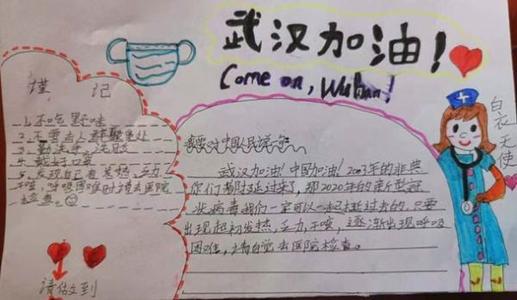 武汉加油！
Come on, Wuhan!
谨记
1. 不吃野味
2. 不要去人群聚集处
3. 勤洗手，洗
4. 戴好口罩
5. 发现自己有发热，乏力
干咳，呼吸困难时请去医院
检查。
请做到
武汉加油！中国加油！2003年的非典
你们都挺过来了，那2020年的新型冠
状病毒我们一定可以一起挺过去的，只要
出现起初发热，乏力，干咳，逐渐出现呼吸
困难，请自觉去医院检查。
白衣天使